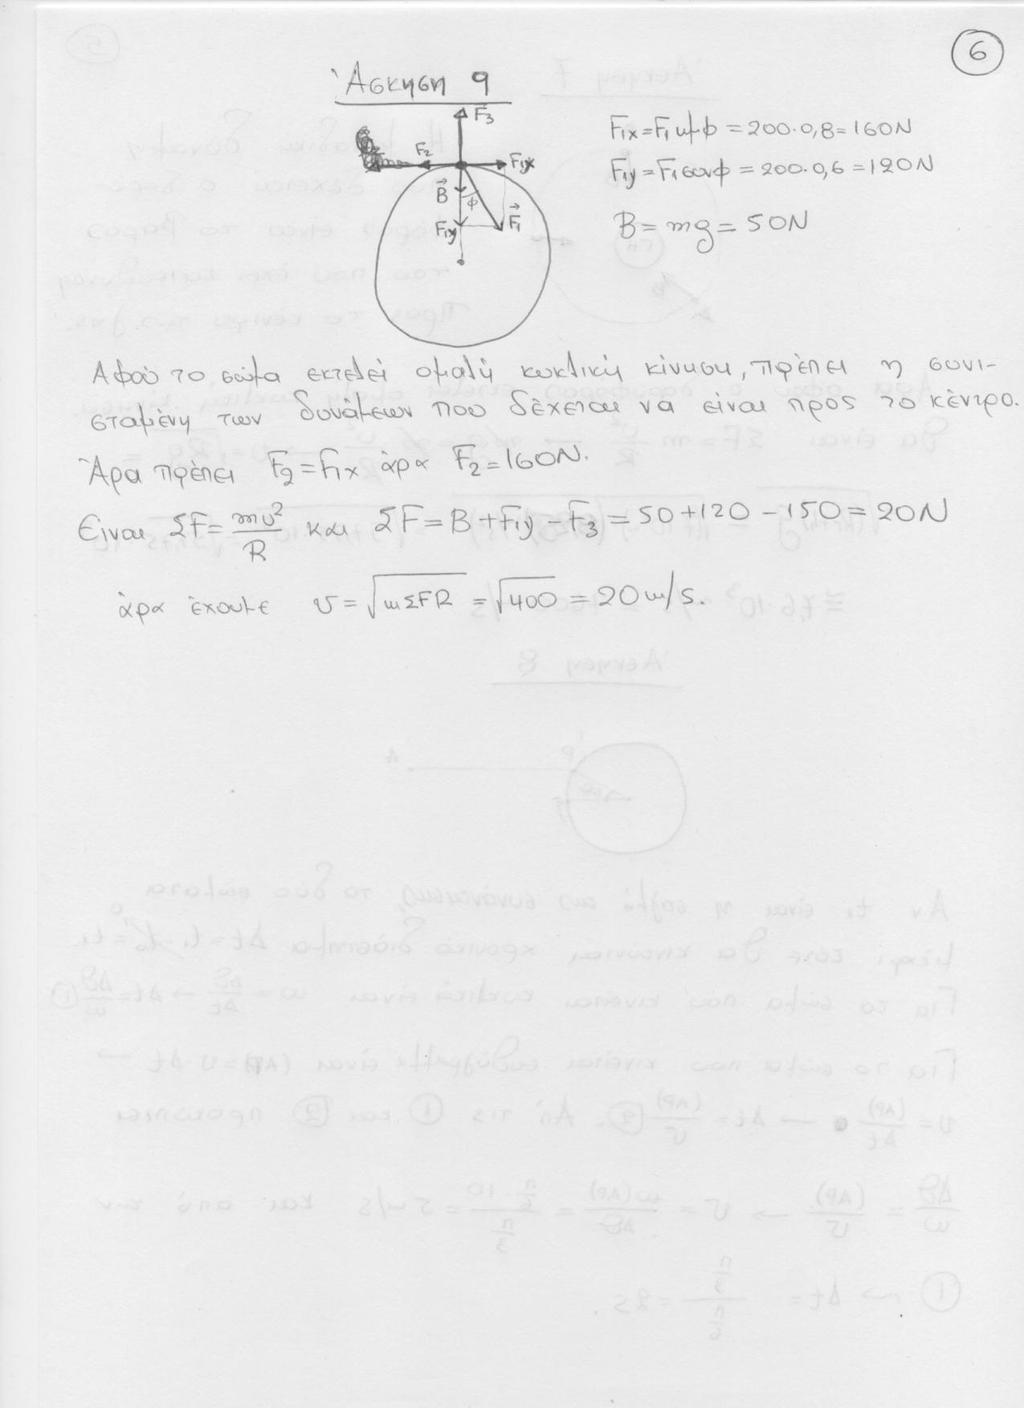 6
Άσκηση 9
F₃
F₂ F₁x
B⃗ φ
F₁y F⃗₁
F₁x = F₁ημφ = 200·0,8 = 160N
F₁y = F₁συνφ = 200·0,6 = 120N
B = mg = 50N
Αφού το σώμα εκτελεί ομαλή κυκλική κίνηση, πρέπει η συνι-
σταμένη των δυνάμεων που δέχεται να είναι προς το κέντρο.
Άρα πρέπει F₂ = F₁x άρα F₂ = 160N.
Είναι ΣF = mυ²/R και ΣF = B + F₁y - F₃ = 50 + 120 - 150 = 20N
άρα έχουμε υ = √mΣFR = √400 = 20m/s.